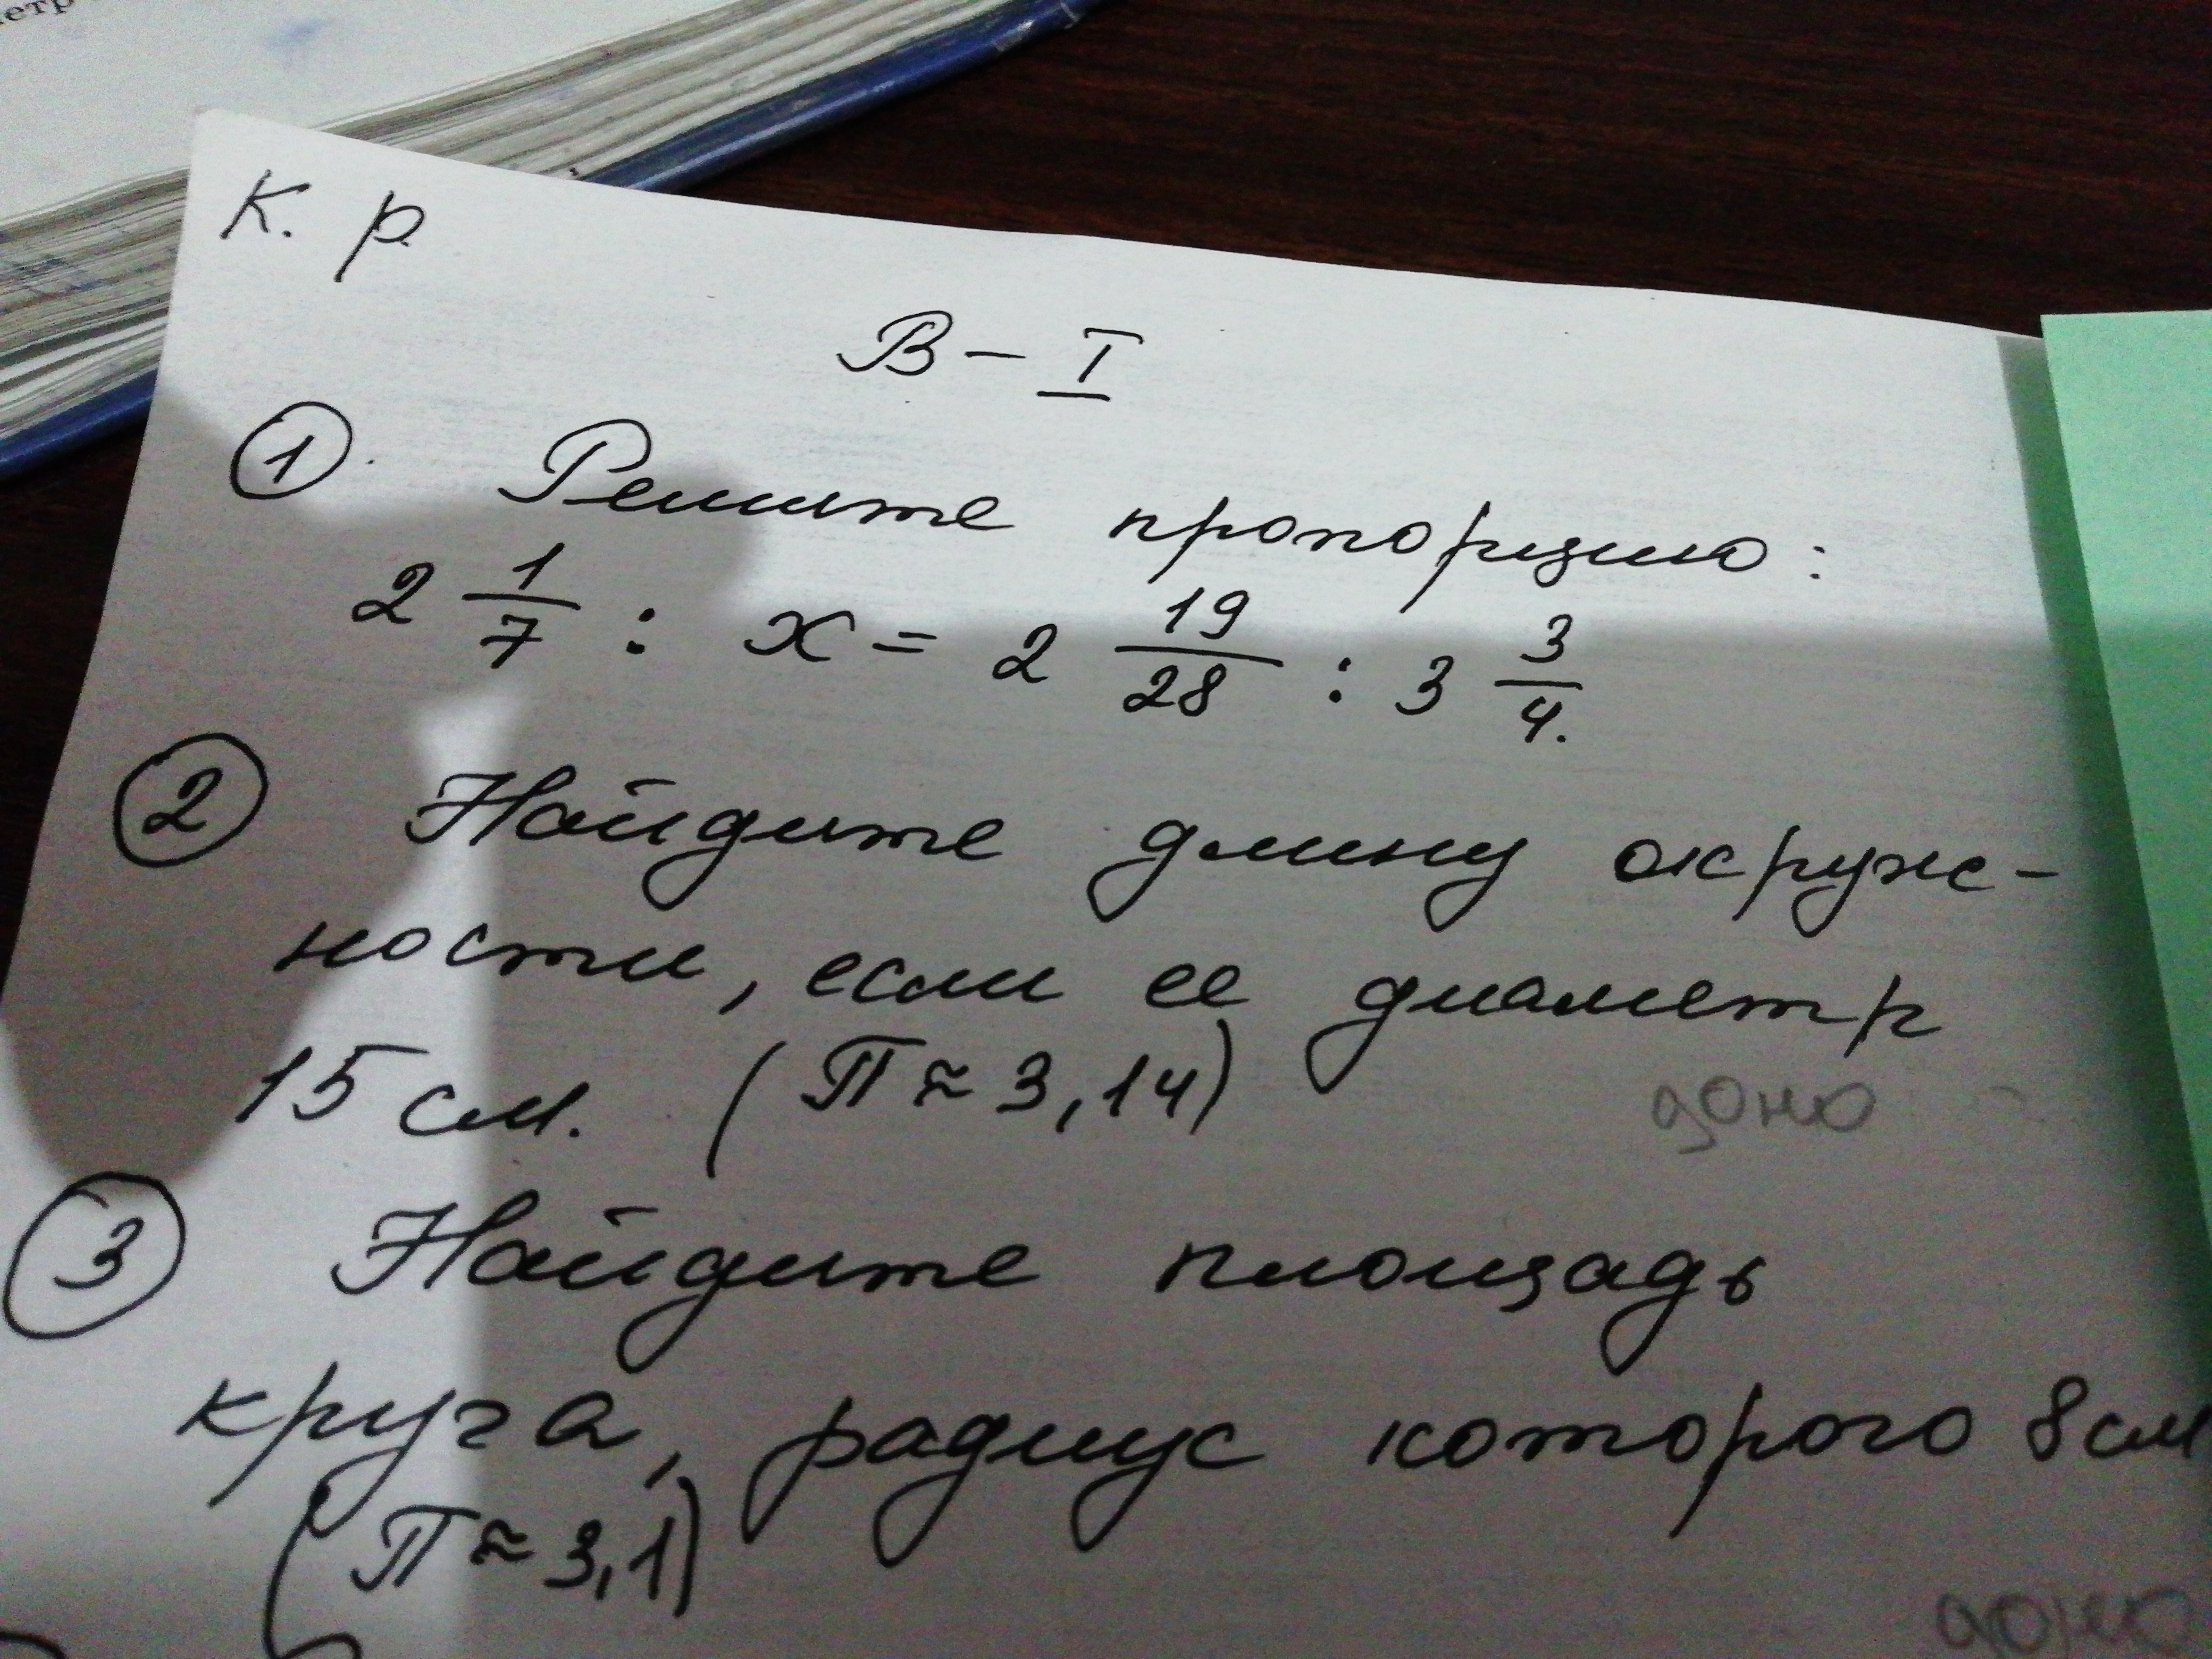 К. р.
В - I
① Решите пропорцию:
2 1/7 : x = 2 19/28 : 3 3/4.
② Найдите длину окруж-
ности, если ее диаметр
15 см. (П ≈ 3,14)
③ Найдите площадь
круга, радиус которого 8 см
(П ≈ 3,1)